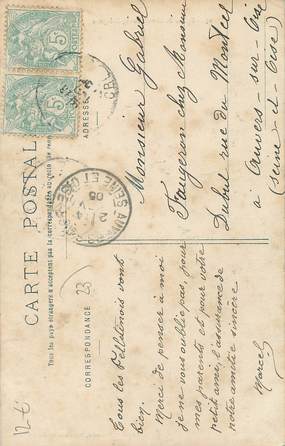 CARTE POSTALE
Tous les pays étrangers n'acceptent pas la correspondance au recto
CORRESPONDANCE
ADRESSE
23
Tous les Felletinois vont
bien.
Merci de penser à moi
je ne vous oublie pas, pour
mes parents et pour votre
petit ami, l'assurance de
notre amitié sincère
Marcel
Monsieur Gabriel
Faugeron chez Monsieur
Dubut rue du Montcel
à Auvers-sur-Oise
(Seine-et-Oise)
5
5
SEINE ET OISE
05